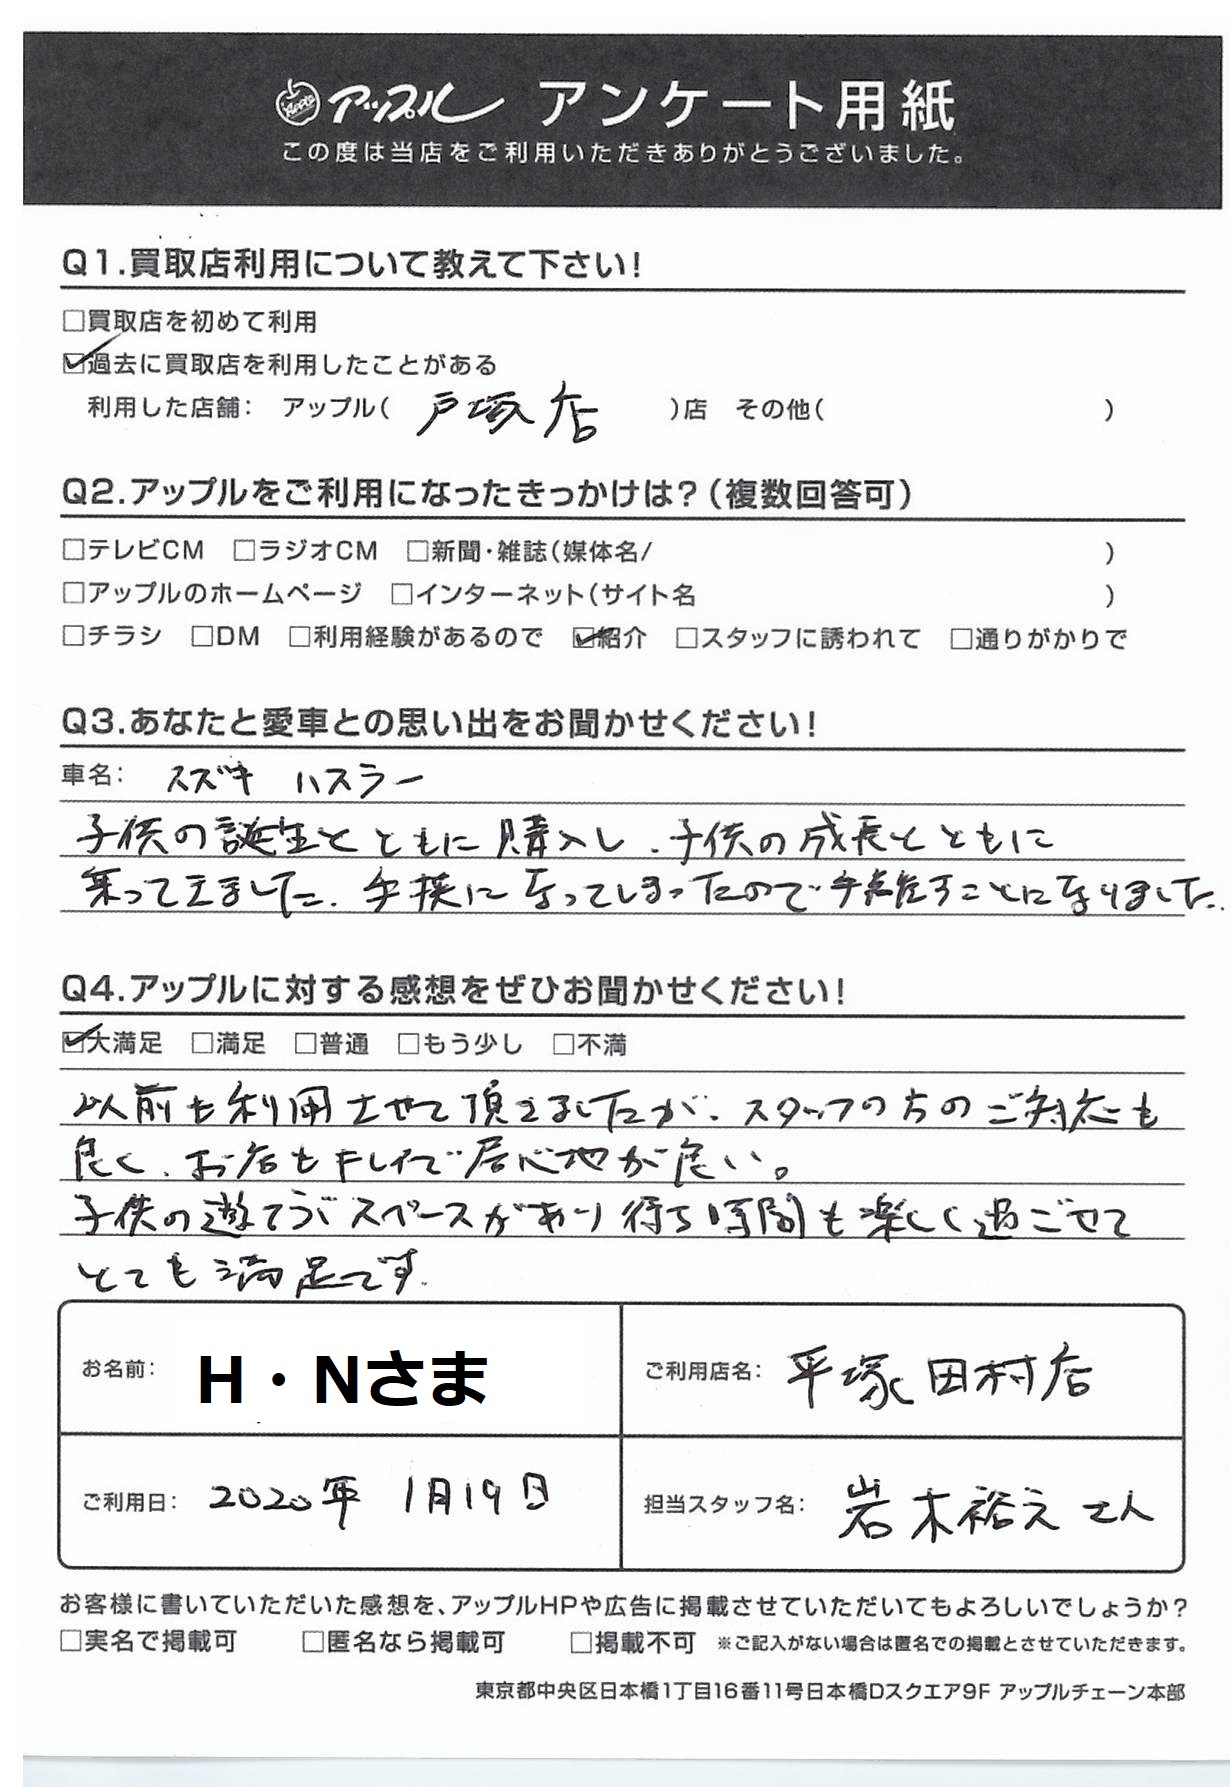 Apple アップル アンケート用紙
この度は当店をご利用いただきありがとうございました。
Q1.買取店利用について教えて下さい!
□買取店を初めて利用
☑過去に買取店を利用したことがある
利用した店舗: アップル( 戸塚店 )店 その他( )
Q2.アップルをご利用になったきっかけは?(複数回答可)
□テレビCM □ラジオCM □新聞・雑誌(媒体名/ )
□アップルのホームページ □インターネット(サイト名 )
□チラシ □DM □利用経験があるので ☑紹介 □スタッフに誘われて □通りがかりで
Q3.あなたと愛車との思い出をお聞かせください!
車名: スズキ ハスラー
子供の誕生とともに購入し、子供の成長とともに
乗ってきました。手狭になってしまったので手離すことになりました。
Q4.アップルに対する感想をぜひお聞かせください!
☑大満足 □満足 □普通 □もう少し □不満
以前も利用させて頂きましたが、スタッフの方のご対応も
良く、お店もキレイで居心地が良い。
子供の遊てるスペースがあり待ち時間も楽しく過ごせて
とても満足です。
お名前: H・Nさま ご利用店名: 平塚田村店
ご利用日: 2020年 1月19日 担当スタッフ名: 岩木裕之さん
お客様に書いていただいた感想を、アップルHPや広告に掲載させていただいてもよろしいでしょうか?
□実名で掲載可 □匿名なら掲載可 □掲載不可 ※ご記入がない場合は匿名での掲載とさせていただきます。
東京都中央区日本橋1丁目16番11号日本橋Dスクエア9F アップルチェーン本部